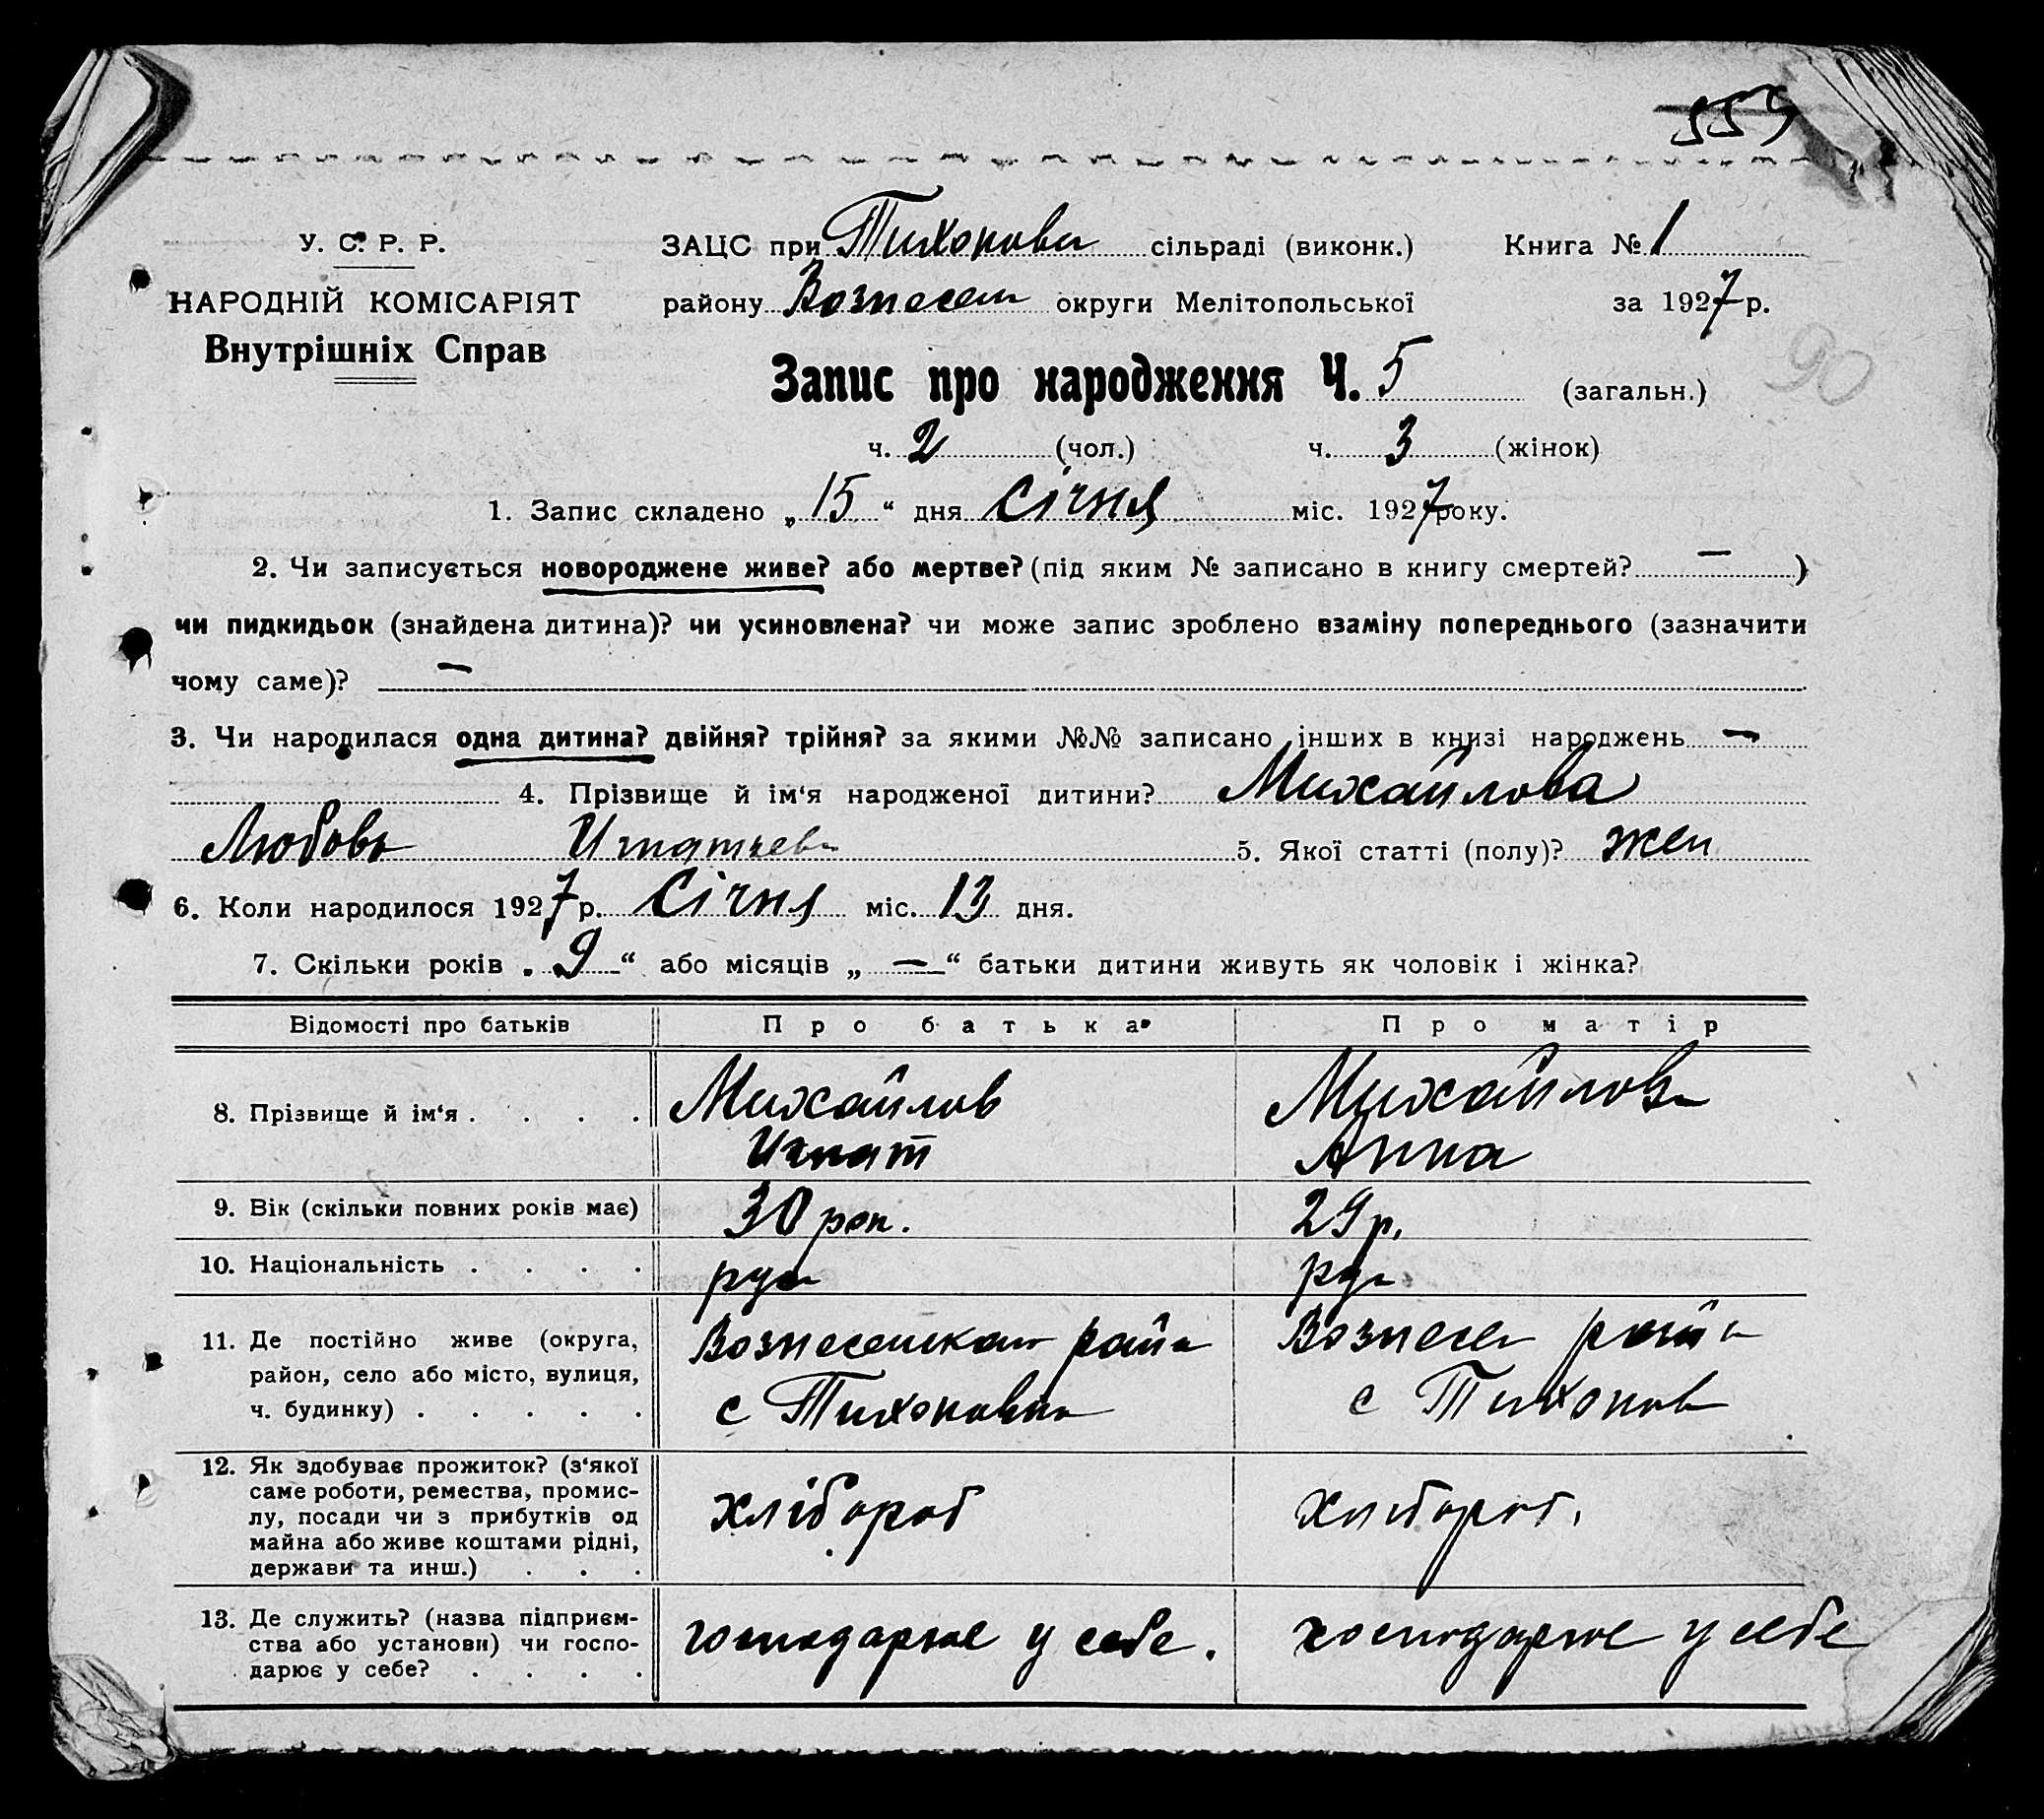 555
У. С. Р. Р.
НАРОДНІЙ КОМІСАРІЯТ
Внутрішніх Справ
ЗАЦС при Тихонови сільраді (виконк.) Книга № 1
району Вознесен округи Мелітопольської за 1927 р.
90
Запис про народження Ч. 5 (загальн.)
ч. 2 (чол.) ч. 3 (жінок)
1. Запис складено „15“ дня Січня міс. 1927 року.
2. Чи записується новороджене живе? або мертве? (під яким № записано в книгу смертей? — )
чи пидкидьок (знайдена дитина)? чи усиновлена? чи може запис зроблено взаміну попереднього (зазначити
чому саме)? —
3. Чи народилася одна дитина? двійня? трійня? за якими №№ записано інших в книзі народжень —
4. Прізвище й ім‘я народженої дитини? Михайлова
Любовь Игнатьев 5. Якої статті (полу)? жен
6. Коли народилося 1927 р. Січня міс. 13 дня.
7. Скільки років „9“ або місяців „—“ батьки дитини живуть як чоловік і жінка?
Відомості про батьків Про батька Про матір
8. Прізвище й ім‘я . . . . Михайлов Михайлов
Игнат Анна
9. Вік (скільки повних років має) 30 рок. 29 р.
10. Національність . . . . рус рус
11. Де постійно живе (округа,
район, село або місто, вулиця,
ч. будинку) . . . . .
Вознесенская район
с Тихоновка
Вознесен район
с Тихонов
12. Як здобуває прожиток? (з‘якої
саме роботи, ремества, промис-
лу, посади чи з прибутків од
майна або живе коштами рідні,
держави та инш.) . . .
хлібороб
хлибороб.
13. Де служить? (назва підприєм-
ства або установи) чи госпо-
дарює у себе? . . . .
господарює у себе.
господарює у себе